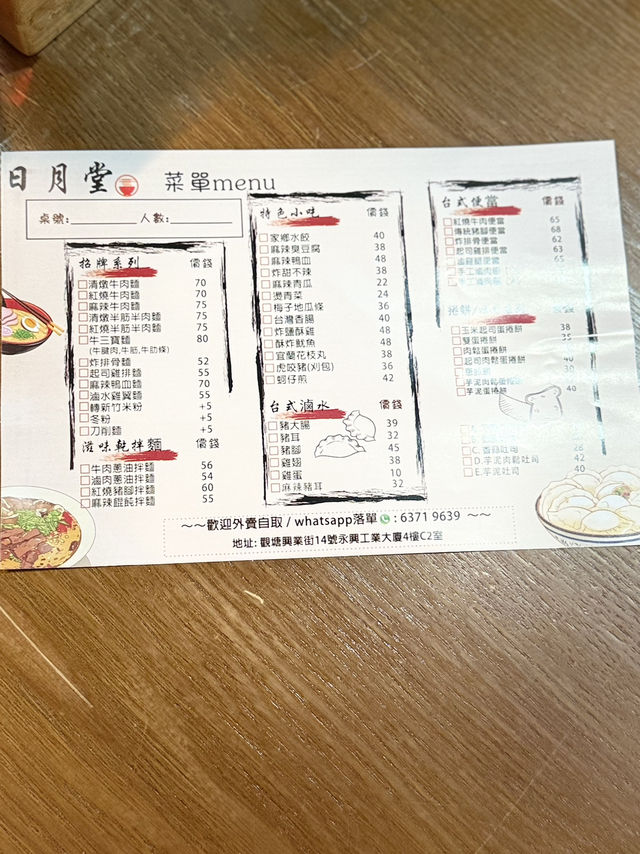 日月堂
菜單menu
桌號:____________人數:____________
招牌系列 價錢
清燉牛肉麵 70
紅燒牛肉麵 70
麻辣牛肉麵 75
清燉半筋半肉麵 75
紅燒半筋半肉麵 75
牛三寶麵 80
(牛腱肉,牛筋,牛肋條)
炸排骨麵 52
起司雞排麵 55
麻辣鴨血麵 70
滷水雞翼麵 55
轉新竹米粉 +5
冬粉 +5
刀削麵 +5
滋味乾拌麵 價錢
牛肉蔥油拌麵 56
滷肉蔥油拌麵 54
紅燒豬腳拌麵 60
麻辣餛飩拌麵 55
特色小吃 價錢
家鄉水餃 40
麻辣臭豆腐 38
麻辣鴨血 48
炸甜不辣 38
麻辣青瓜 22
燙青菜 24
梅子地瓜條 36
台灣香腸 40
炸鹽酥雞 48
酥炸魷魚 48
宜蘭花枝丸 38
虎咬豬(刈包) 36
蚵仔煎 42
台式滷水 價錢
豬大腸 39
豬耳 32
豬腳 45
雞翅 38
雞蛋 10
麻辣豬耳 32
台式便當 價錢
紅燒牛肉便當 65
傳統豬腳便當 68
炸排骨便當 62
起司雞排便當 63
滷雞腿便當 65
手工滷肉飯
手工滷肉飯
捲餅 價錢
玉米起司蛋捲餅 38
雙蛋捲餅 35
肉鬆蛋捲餅
起司肉鬆蛋捲餅 40
30
芋泥肉鬆蛋捲餅
芋泥蛋捲餅 40
C.香蒜吐司 28
D.芋泥肉鬆吐司 42
E.芋泥吐司 40
~~歡迎外賣自取 / whatsapp落單 : 6371 9639 ~~
地址: 觀塘興業街14號永興工業大廈4樓C2室